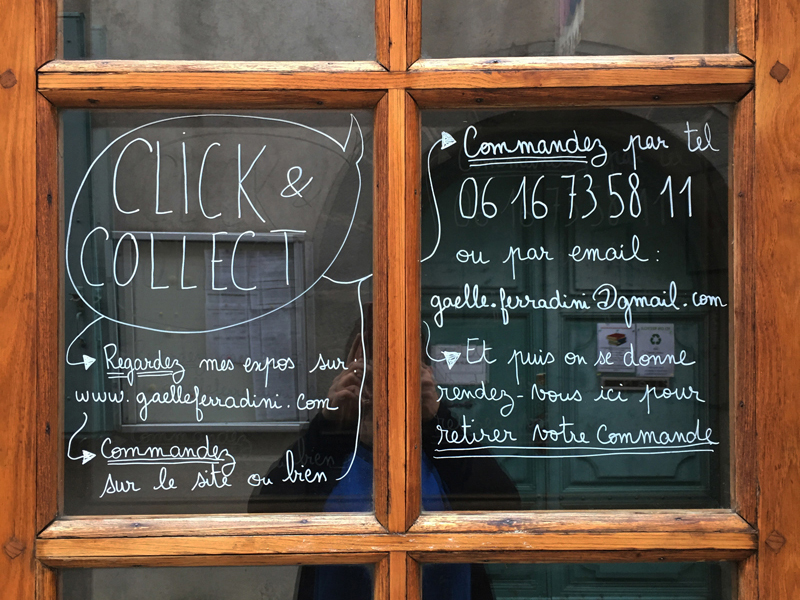 CLICK &
COLLECT
Regardez mes expos sur:
www.gaelleferradini.com
Commandez
sur le site ou bien
Commandez par tel
06 16 73 58 11
ou par email:
gaelle.ferradini@gmail.com
Et puis on se donne
rendez-vous ici pour
retirer votre Commande